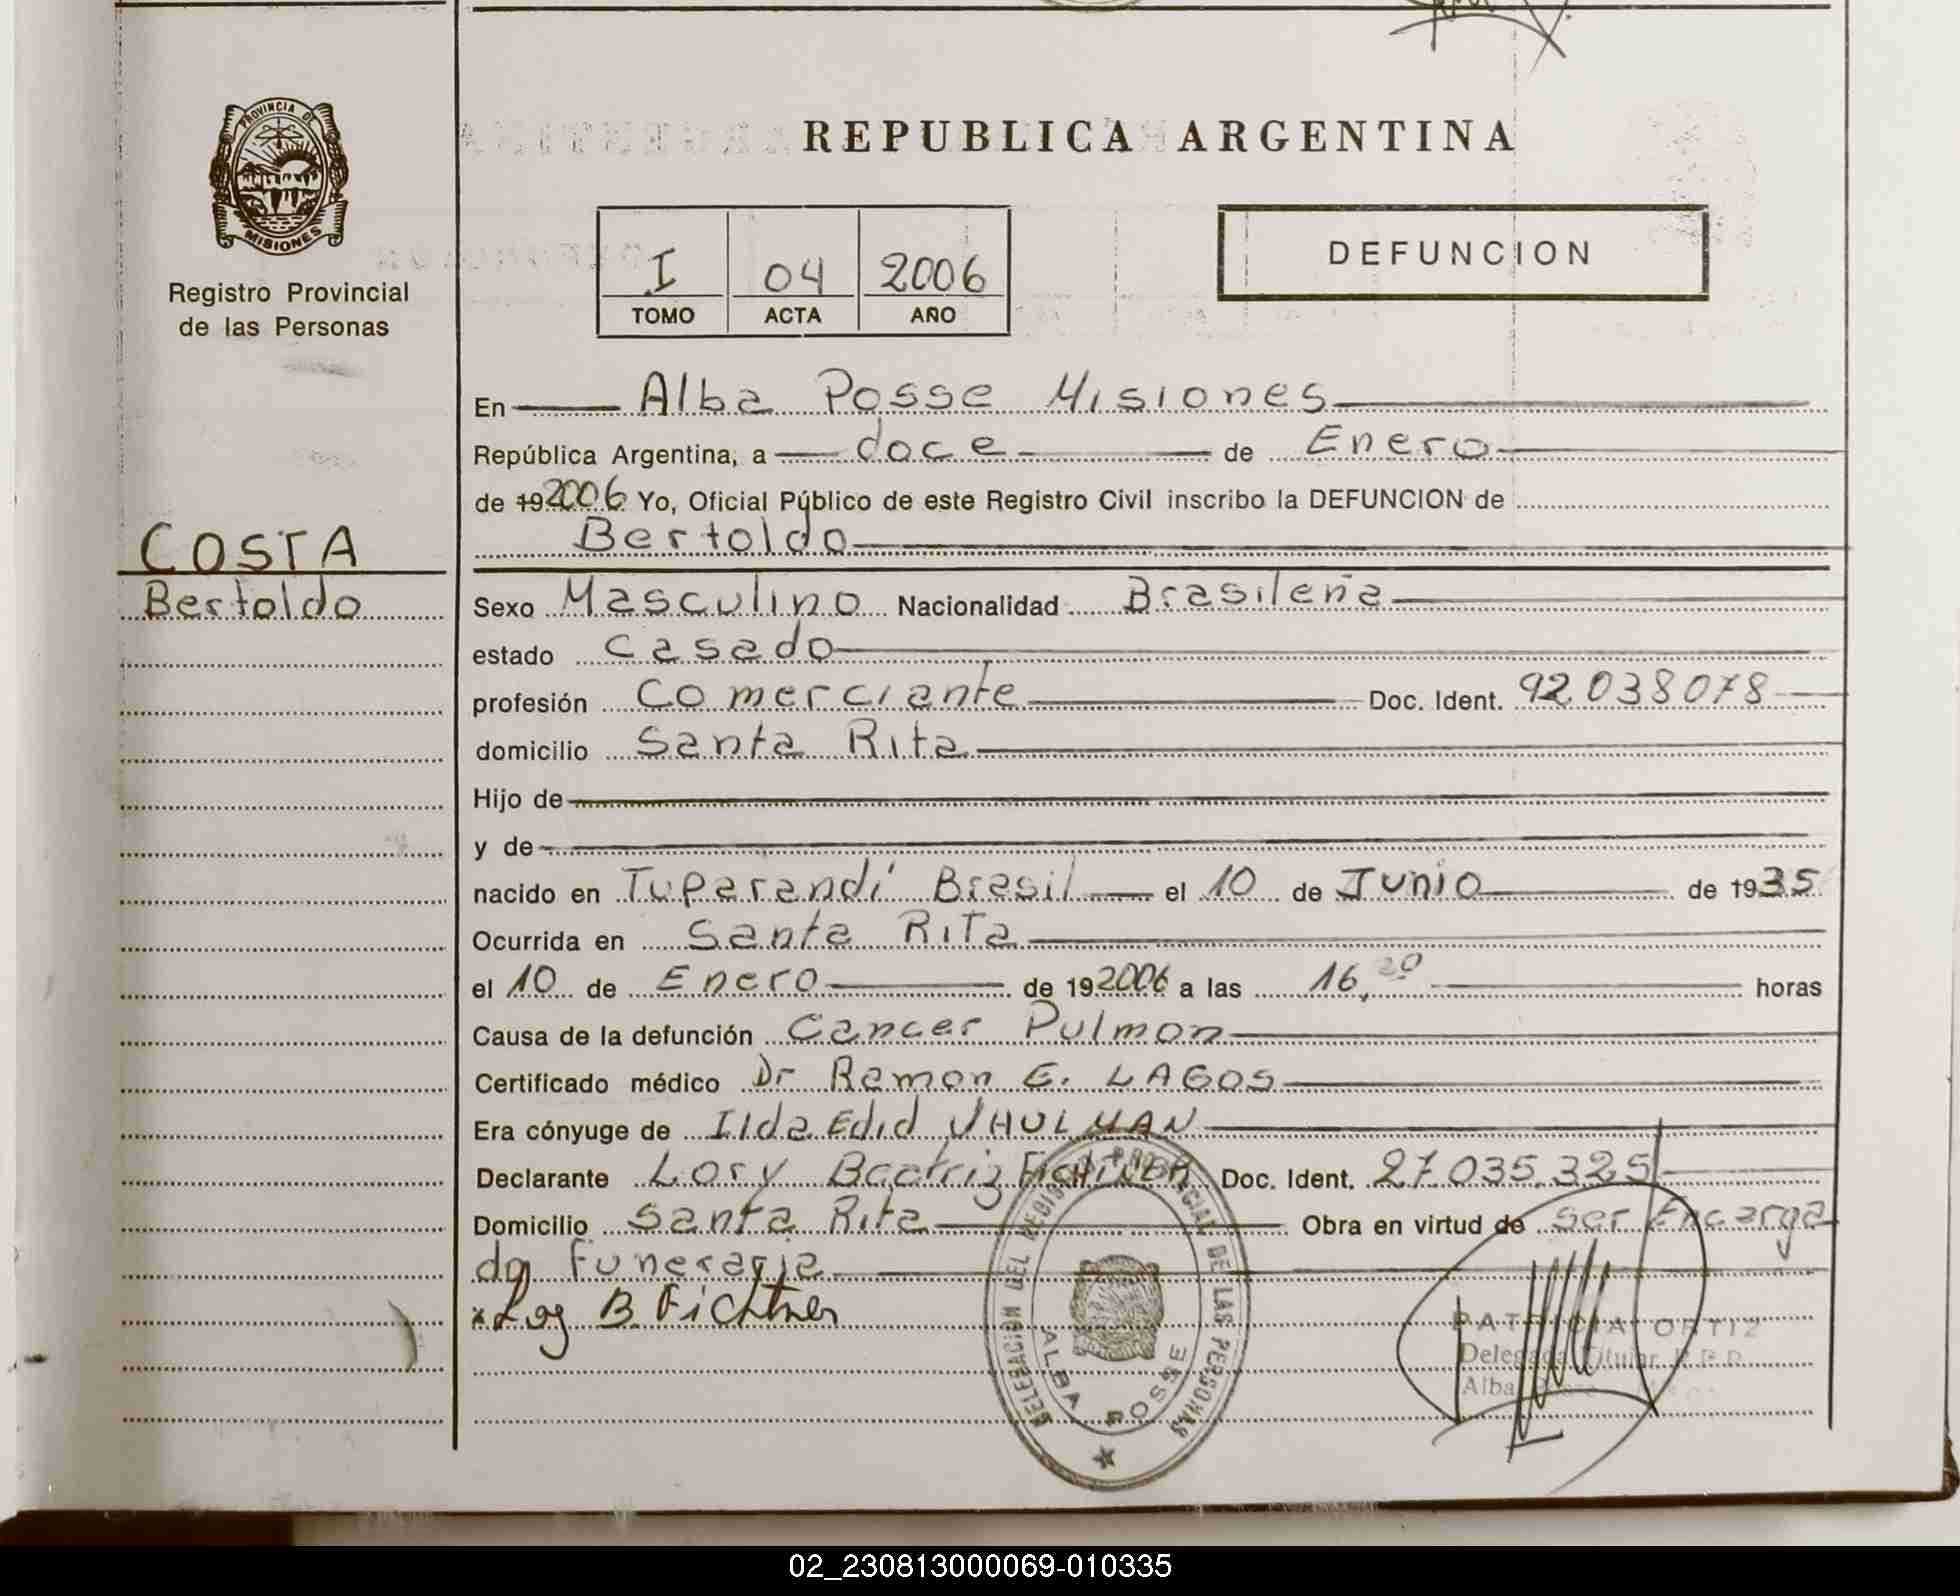 PROVINCIA DE
MISIONES
Registro Provincial
de las Personas
COSTA
Bertoldo
REPUBLICA ARGENTINA
I 04 2006
TOMO ACTA AÑO
DEFUNCION
En Alba Posse Misiones
República Argentina, a doce de Enero
de 19 2006 Yo, Oficial Público de este Registro Civil inscribo la DEFUNCION de
Bertoldo
Sexo Masculino Nacionalidad Brasileña
estado Casado
profesión Comerciante Doc. Ident. 92.038078
domicilio Santa Rita
Hijo de
y de
nacido en Tuparandí Brasil el 10 de Junio de 1935
Ocurrida en Santa Rita
el 10 de Enero de 19 2006 a las 16,20 horas
Causa de la defunción Cancer Pulmon
Certificado médico Dr Ramon E. LAGOS
Era cónyuge de Ilda Edid VHULMAN
Declarante Lory Beatriz FICHTNER Doc. Ident. 27.035.325
Domicilio Santa Rita Obra en virtud de ser Encarga
da Funeraria
x B. Fichtner
DELEGACION DEL REGISTRO PROVINCIAL DE LAS PERSONAS
ALBA POSSE
PATRICIA ORTIZ
Delegada Titular R.P.P.
Alba Posse
02_230813000069-010335